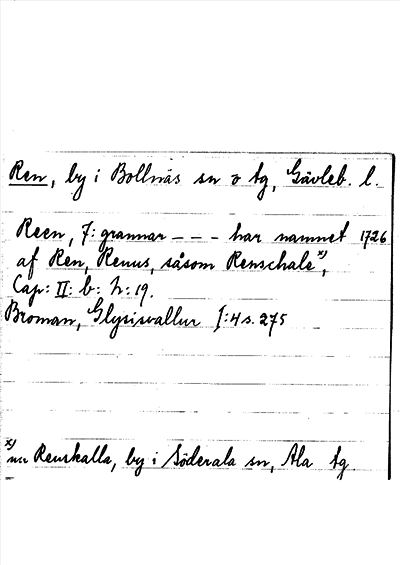 Ren, by i Bollnäs sn o tg, Gävleb. l.
Reen, 7: grannar – – – har namnet 1726
af Ren, Renus, såsom Renschale x),
Cap: II: b: h: 19.
Broman, Glysisvallur I:4 s. 275
x) nu Renskalla, by i Söderala sn, Ala tg.